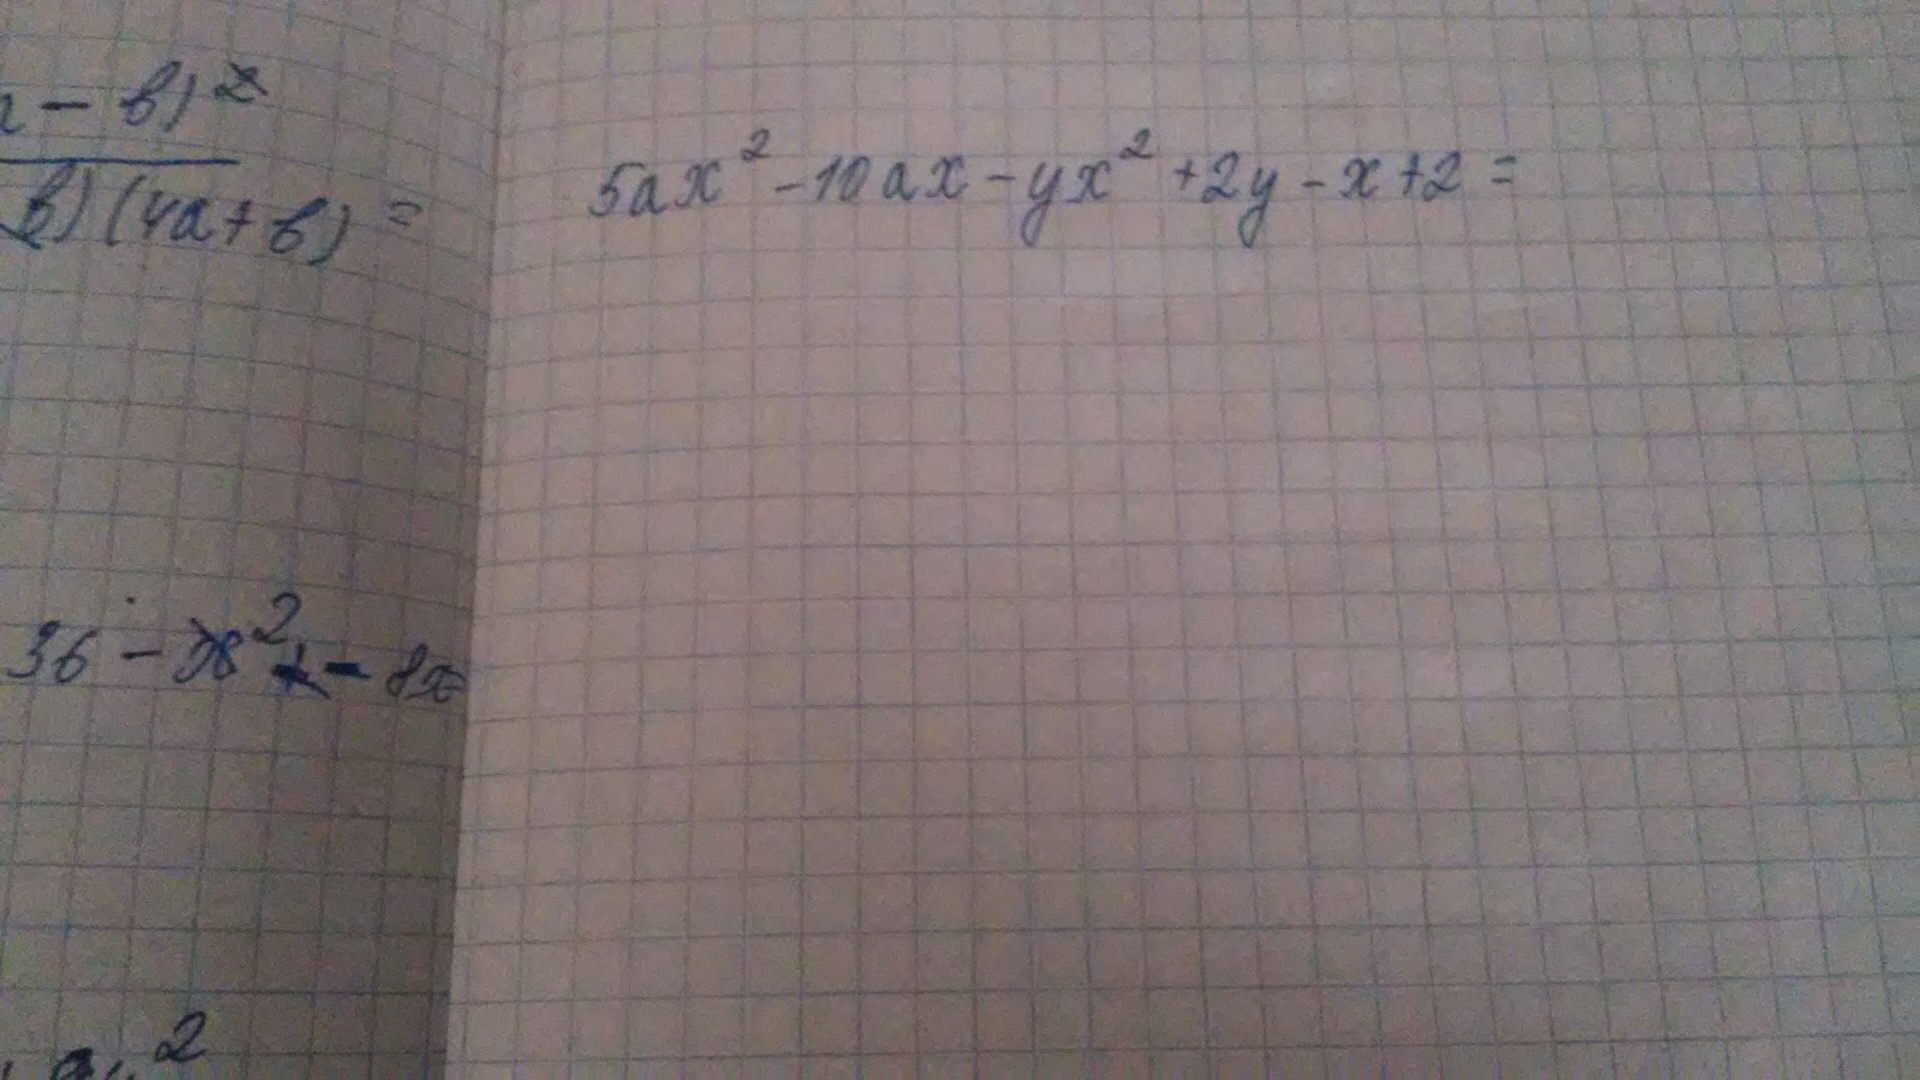 - в)²
в) (4a + в) =
36 - x² - 8x
5ax² - 10ax - yx² + 2y - x + 2 =